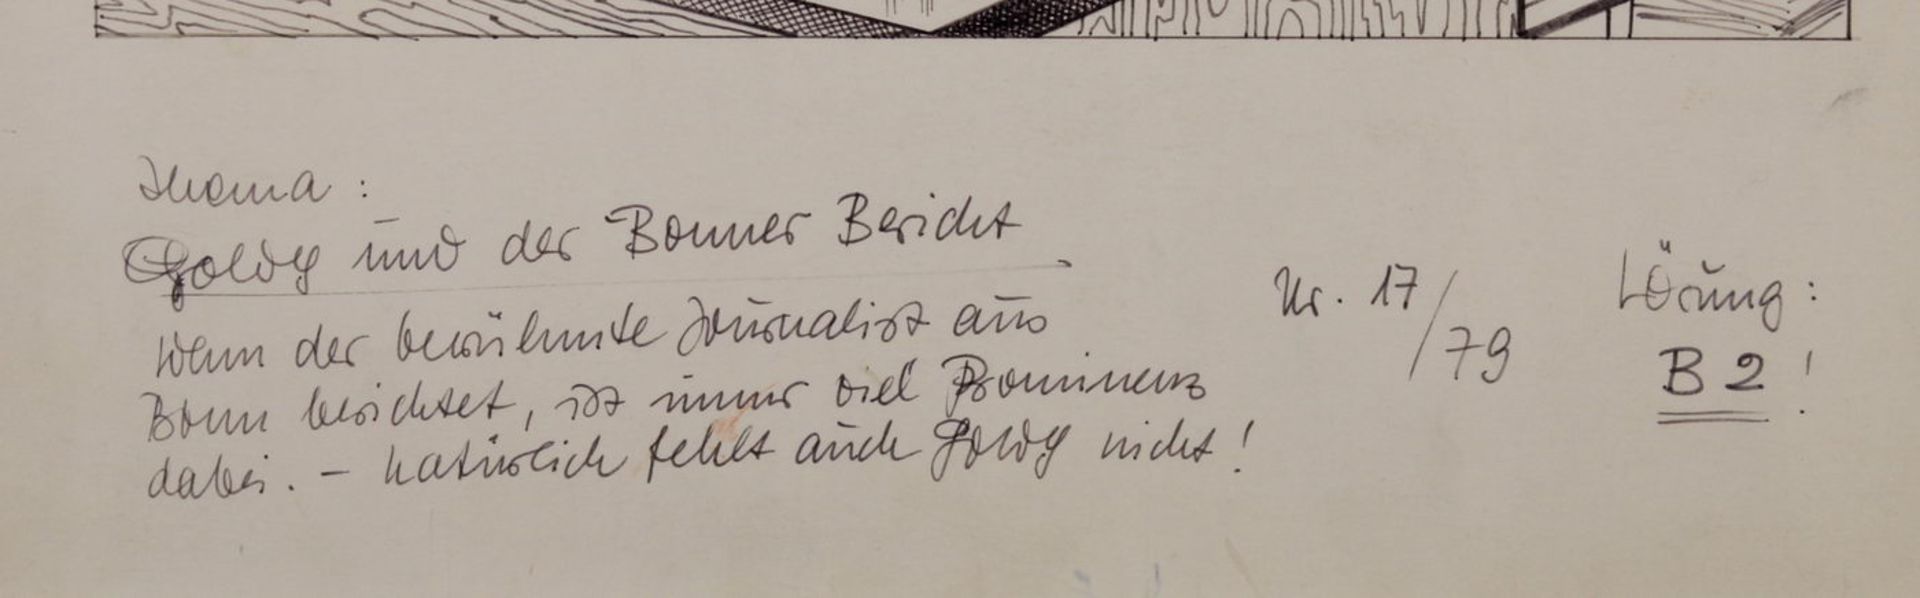 Thema :
Goldy und der Bonner Bericht
Wenn der berühmte Journalist aus
Bonn berichtet, ist immer viel Prominenz
dabei. – Natürlich fehlt auch Goldy nicht!
Nr. 17/79
Lösung :
B 2 !